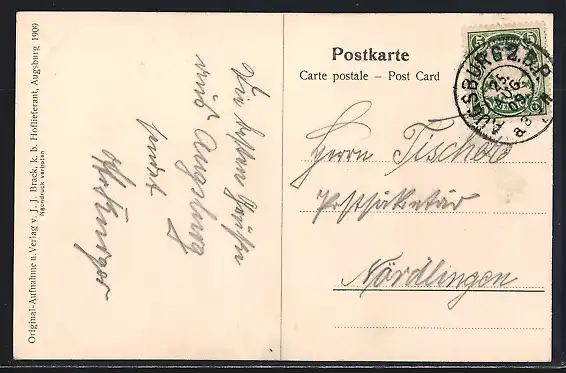 Original-Aufnahme u. Verlag v. J. J. Brack, k. b. Hoflieferant, Augsburg 1909
Nachdruck verboten
Die besten Grüße
aus Augsburg
sendet
Postkarte
Carte postale – Post Card
AUGSBURG 2. B.P.
25
AUG
09
5
5
Herrn Tischer
Postsekretär
Nördlingen